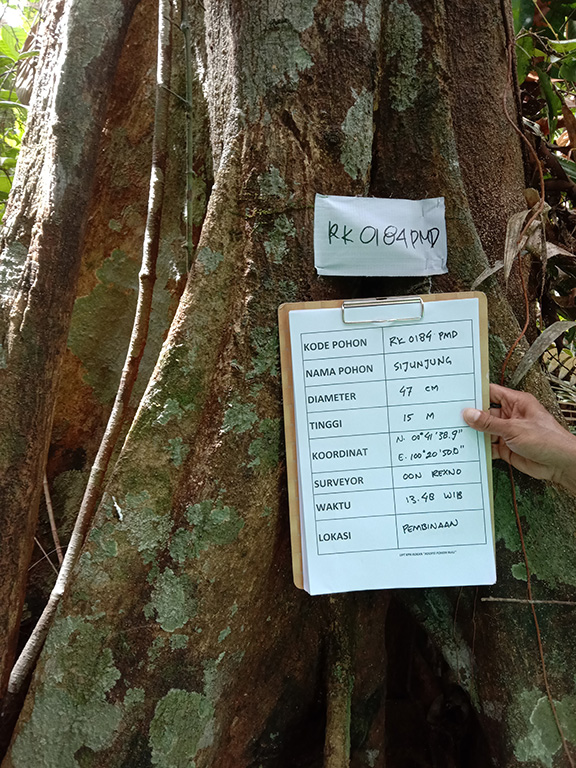 RK 0184 PMD
KODE POHON RK 0184 PMD
NAMA POHON SIJUNJUNG
DIAMETER 47 CM
TINGGI 15 M
KOORDINAT N. 00°41'38.9"
E. 100°20'50.0"
SURVEYOR OON REXNO
WAKTU 13.48 WIB
LOKASI PEMBINAAN